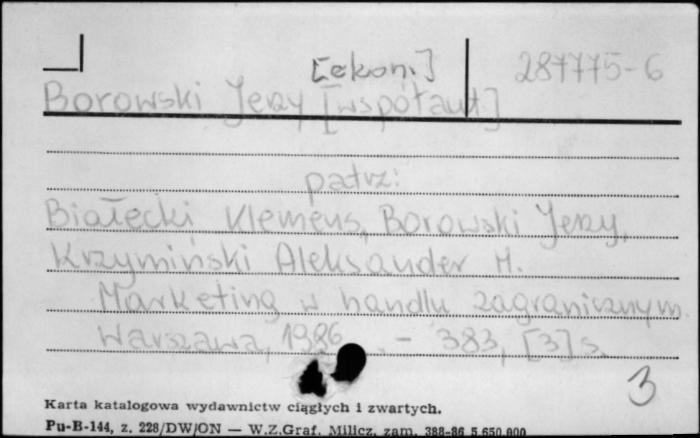 [ekon.] 287775-6
Borowski Jerzy [współaut.]
patrz:
Białecki Klemens, Borowski Jerzy,
Krzymiński Aleksander H.
Marketing w handlu zagranicznym.
Warszawa, 1986. - 383, [3] s.
3
Karta katalogowa wydawnictw ciągłych i zwartych.
Pu-B-144, z. 228/DW/ON — W.Z.Graf. Milicz, zam. 388-86 5.650.000